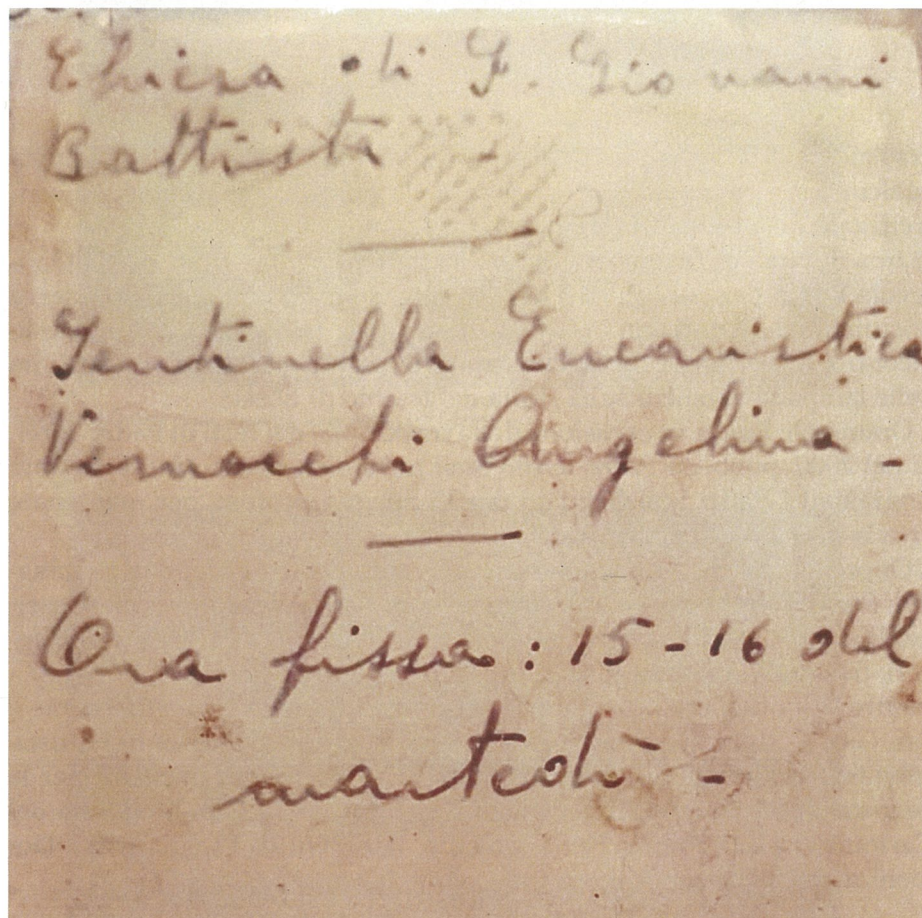 Chiesa di S. Giovanni
Battista -
Sentinella Eucaristica
Vernocchi Angelina -
Ora fissa : 15 - 16 del
martedì -